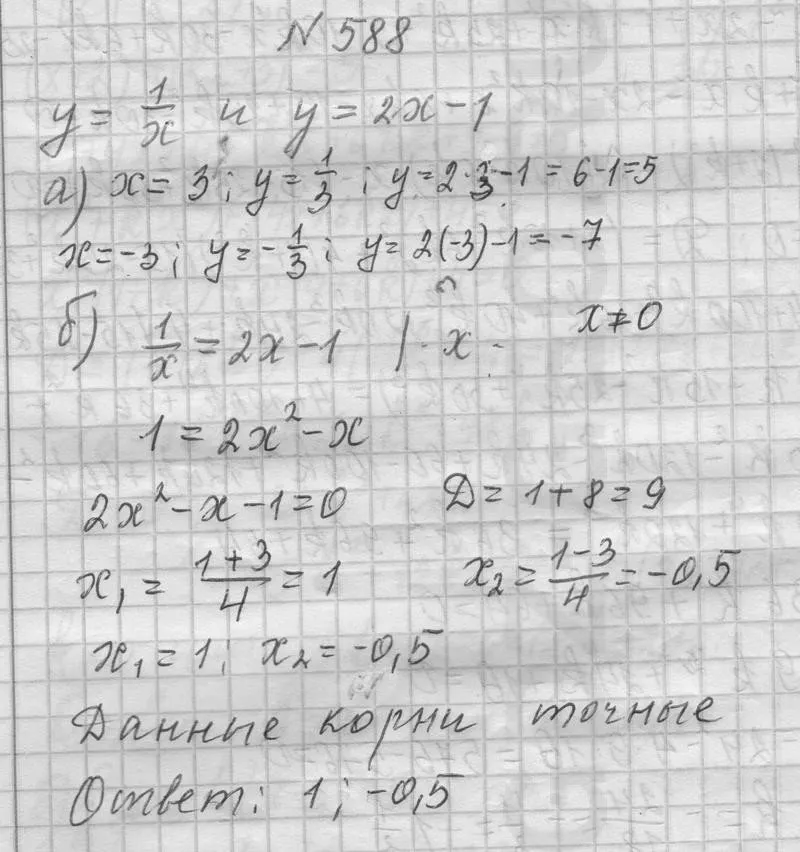 № 588
y = 1/x и y = 2x - 1
а) x = 3; y = 1/3; y = 2·3 - 1 = 6 - 1 = 5
x = -3; y = -1/3; y = 2(-3) - 1 = -7
б) 1/x = 2x - 1 | · x · x ≠ 0
1 = 2x² - x
2x² - x - 1 = 0 D = 1 + 8 = 9
x₁ = (1+3)/4 = 1 x₂ = (1-3)/4 = -0,5
x₁ = 1; x₂ = -0,5
Данные корни точные
Ответ: 1; -0,5